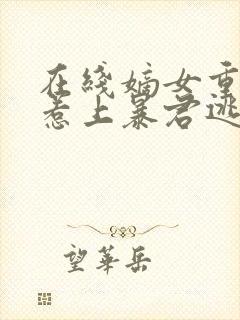 在线嫡女重
惹上暴君逃
望华岳